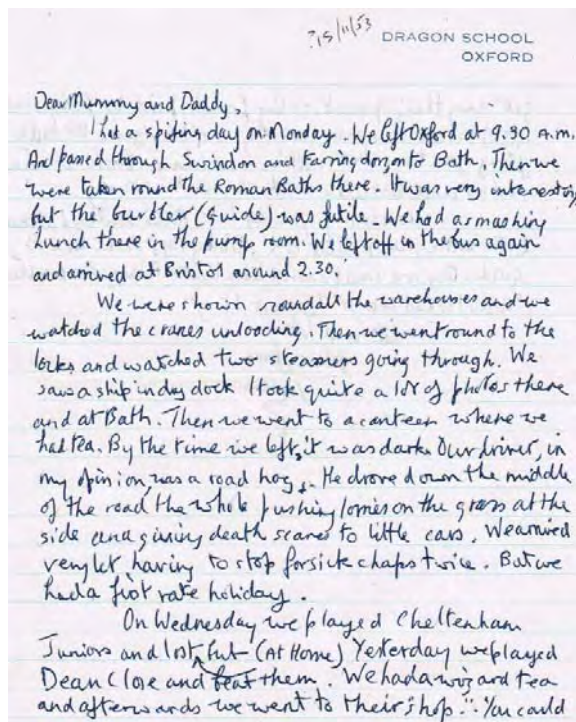 ?15/11/53
DRAGON SCHOOL
OXFORD
Dear Mummy and Daddy,
I had a spifing day on Monday. We left Oxford at 9.30 A.m.
And passed through Swindon and Farringdon, onto Bath. Then we
were taken round the Roman Baths there. It was very interesting
but the burbler (guide) was futile. We had a smashing
Lunch there in the pump room. We left off in the bus again
and arrived at Bristol around 2.30.
We were shown round all the warehouses and we
watched the cranes unlooding. Then we went round to the
locks and watched two steamers going through. We
saw a ship in dry dock I took quite a lot of photos there
and at Bath. Then we went to a canteen where we
had tea. By the time we left, it was dark. Our driver, in
my opinion, was a road hog. He drove down the middle
of the road the whole pushing lorries on the grass at the
side and giving death scares to little cars. We arrived
very let having to stop for sick chaps twice. But we
had a first rate holiday.
On Wednesday we played Cheltenham
Juniors and lost, but (At Home) Yesterday we played
Dean Close and beat them. We had a wizard tea
and afterwards we went to their shop. You could